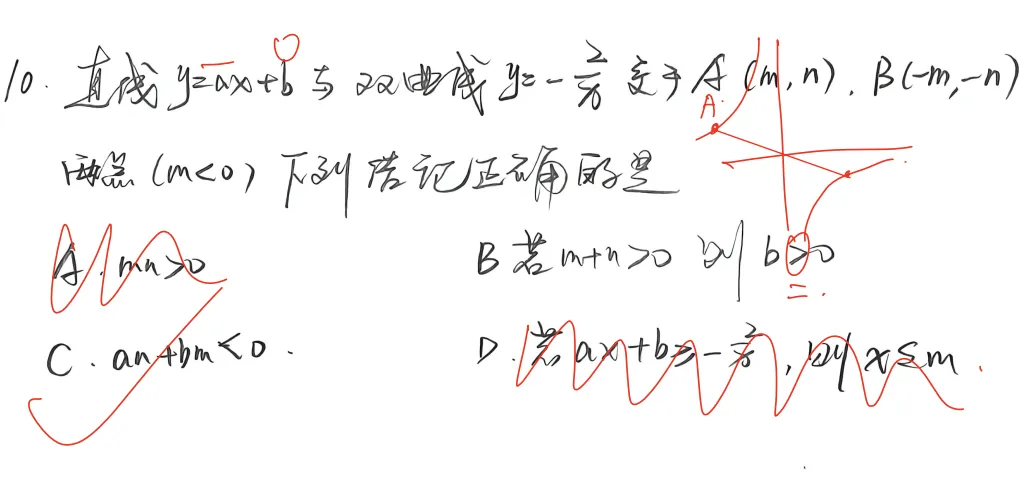 10. 直线 y=ax+b 与双曲线 y=-2/x 交于 A(m,n), B(-m,-n)
A.
两点 (m<0) 下列结论正确的是
A. mn>0 B 若 m+n>0 则 b>0
=
C. an+bm<0. D. 若 ax+b≥-2/x, 则 x≤m.